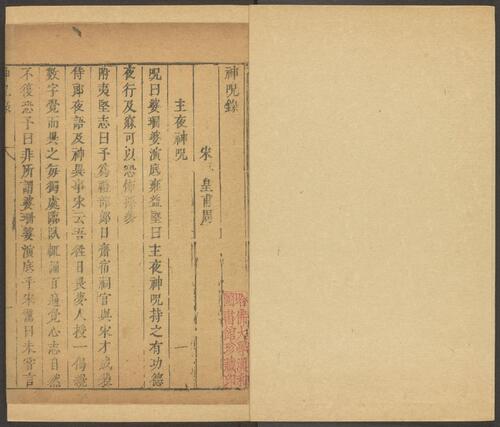 神咒錄
宋 皇甫周
主夜神咒
咒曰婆珊婆演底雍益堅曰主夜神咒持之有功德
夜行及寐可以恐怖惡夢
附夷堅志曰予為禮部郎日齋宿祠官與宋才成
侍郎夜語及神異事宋云吾往日畏夢人授一偈
數字覺而異之每獨處臨臥輒誦百遍覺心志自然
不復恐予曰非所謂婆珊婆演底乎宋驚曰未嘗言
哈佛大學漢和圖書館珍藏印